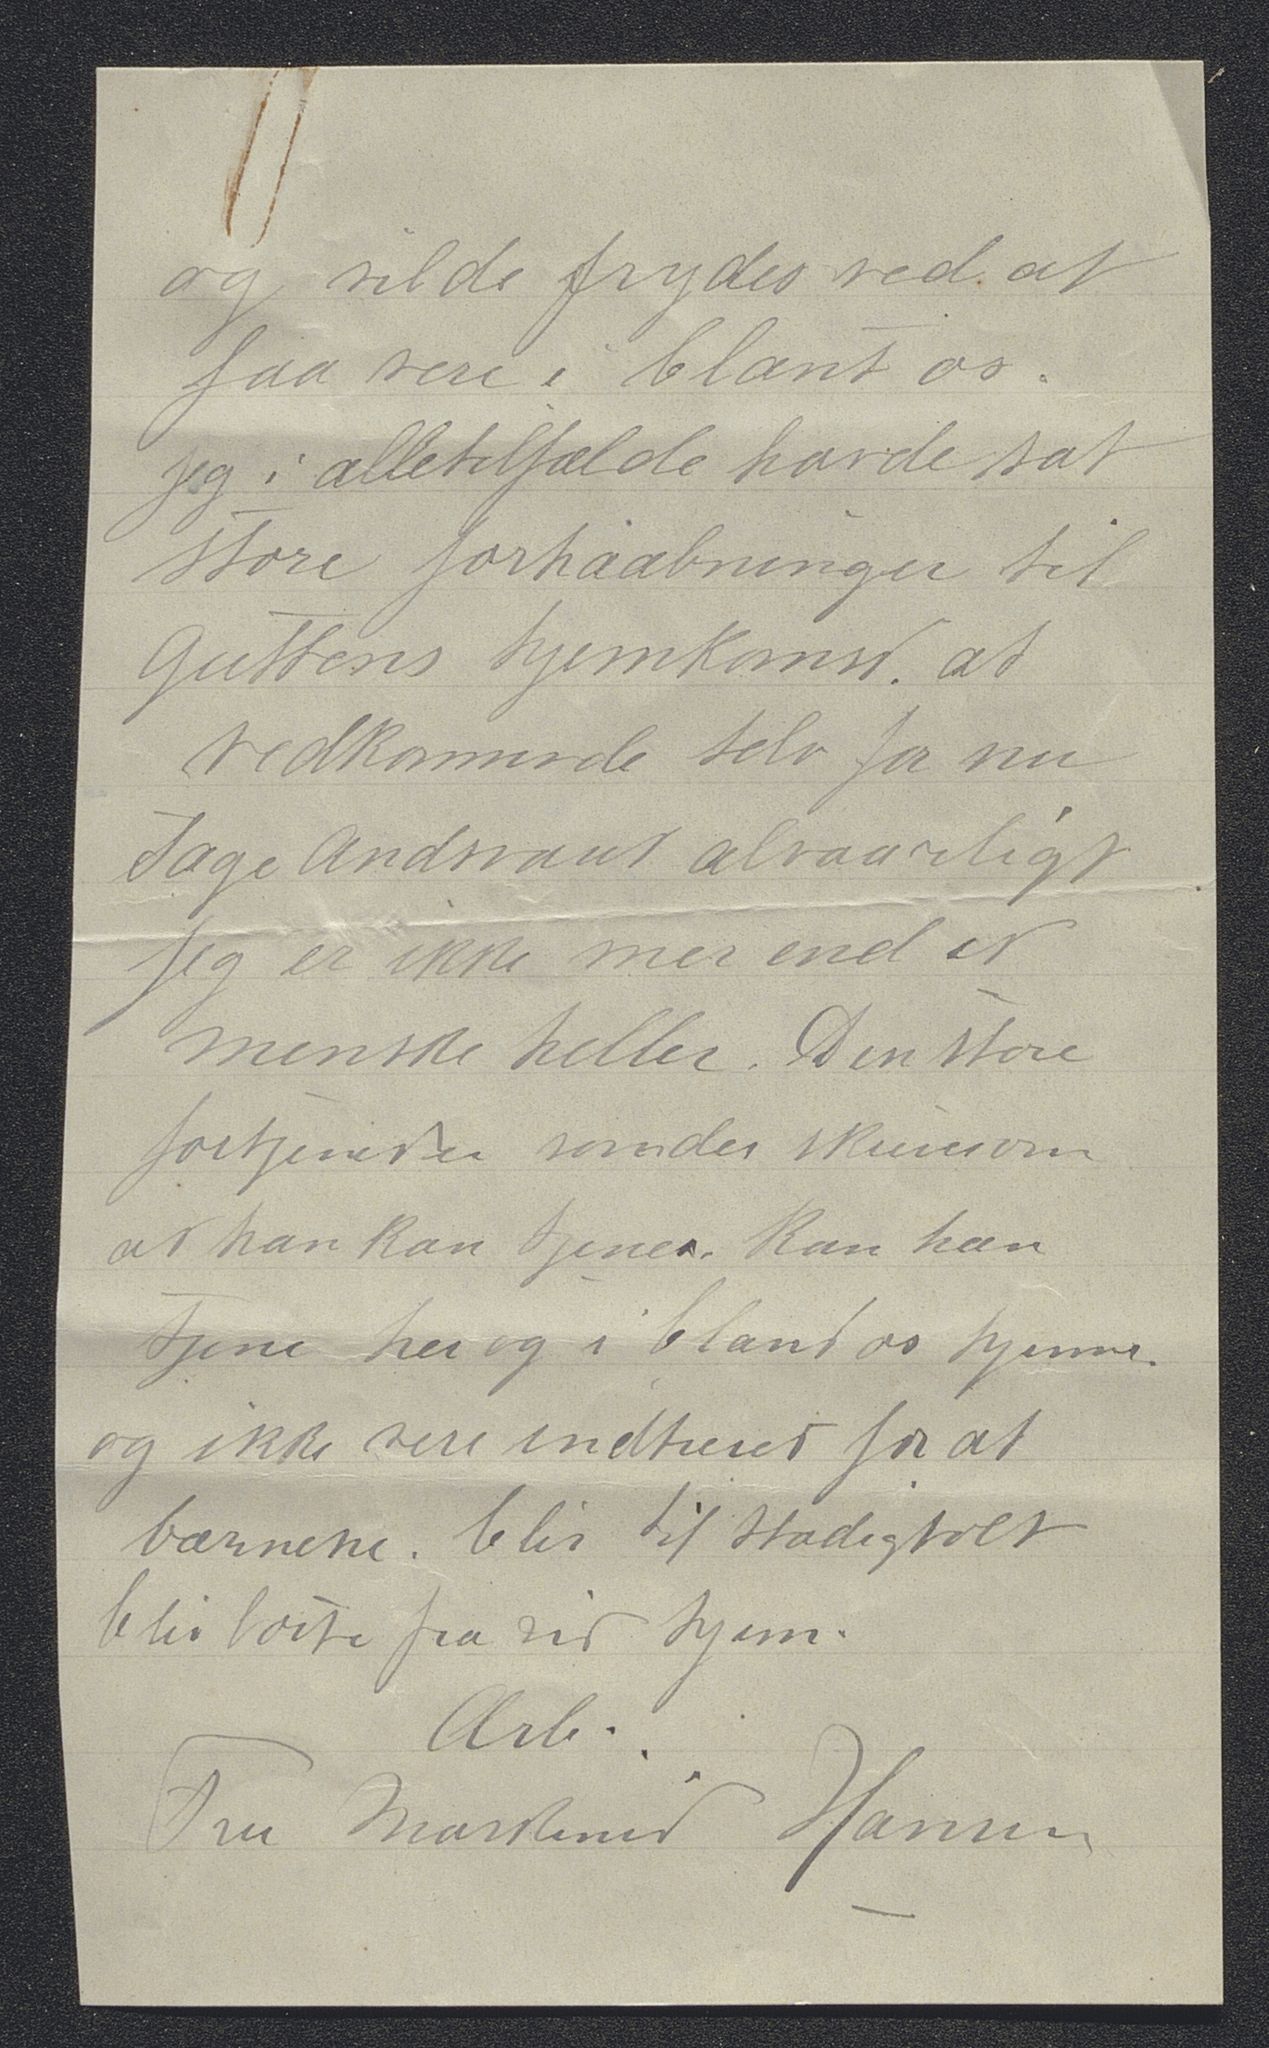 og vilde frydes ved at
faa vere i blant os.
jeg i alletilfælde havde sat
store forhaabninger til
Guttens hjemkomst. at
vedkommende selv for nu
Tage Andsvaret alvaarligt
jeg er ikke mer end et
menske heller. Den store
fortjeneste som der
at han kan tjene. Kan han
Tjene her og i bland os hjeme.
og ikke vere for at
bærnene. blir til stadighet
blir borte fra sit hjem.
Ærb.
Fru Hansen